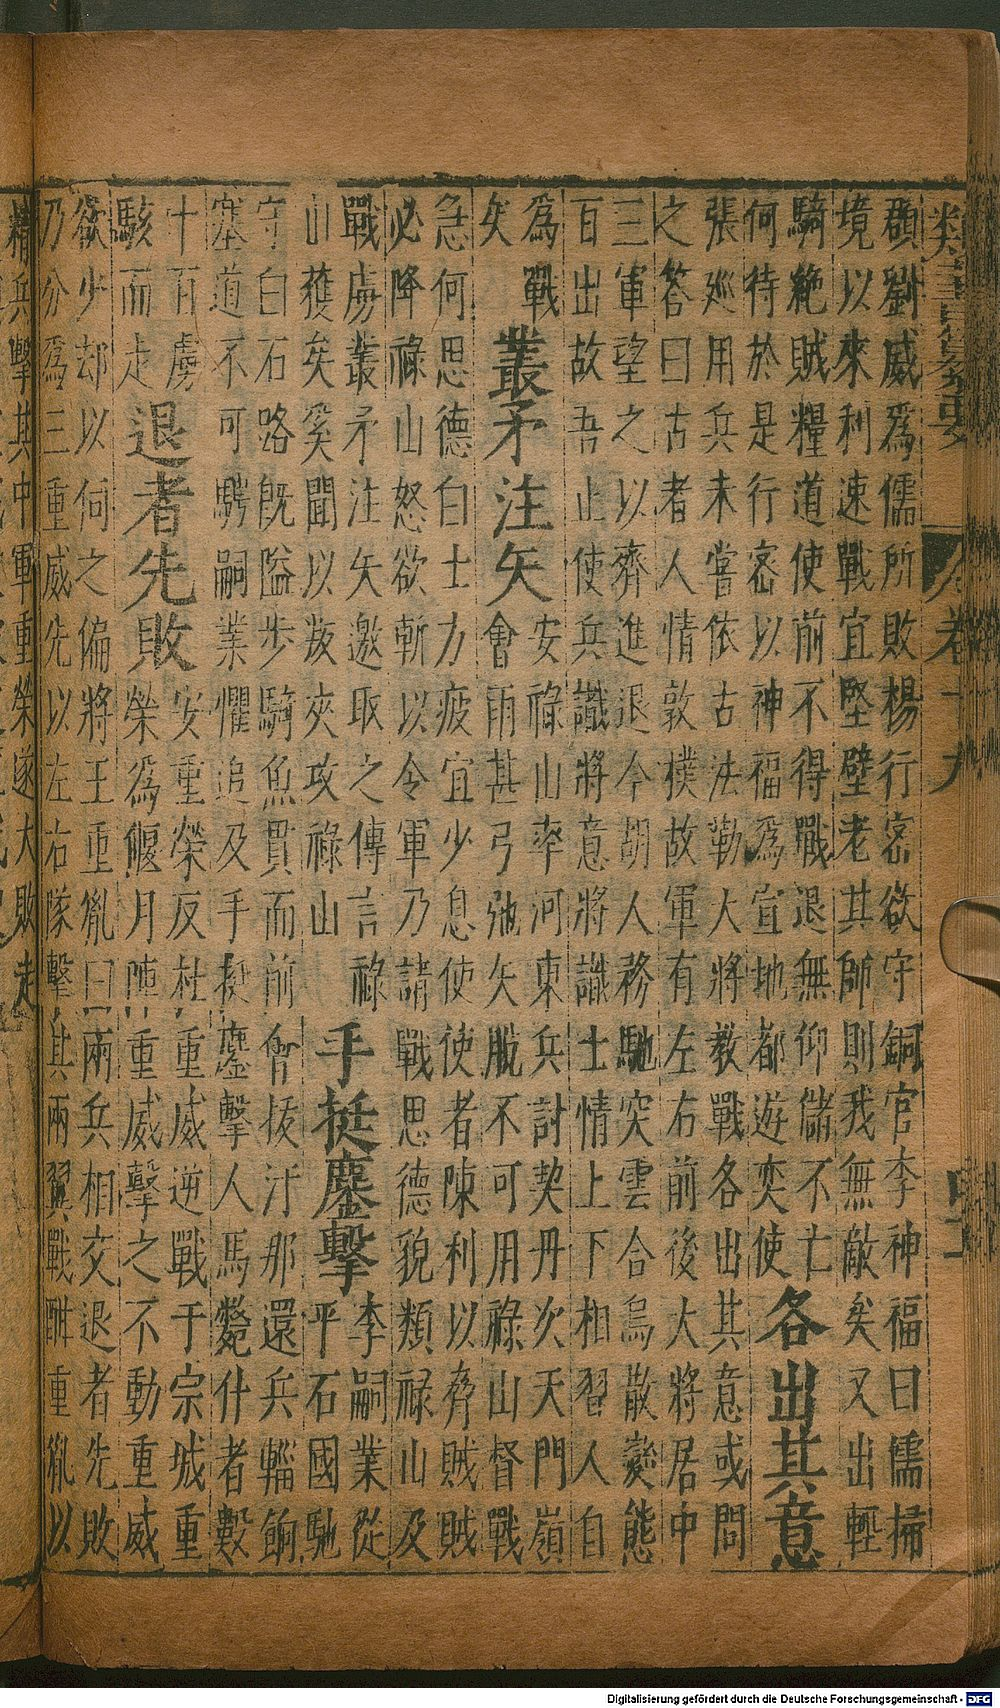 類書纂要 卷十九
頵劉威為儒所敗楊行密欲守銅官李神福曰儒掃
境以來利速戰宜堅壁老其師則我無敵矣又出輕
騎絶賊糧道使前不得戰退無仰儲不亡
何待於是行密以神福為宣地都遊奕使
各出其意
張廵用兵未嘗依古法勒大將教戰各出其意或問
之答曰古者人情敦樸故軍有左右前後大將居中
三軍望之以齊進退今胡人務馳突雲合烏散變態
百出故吾止使兵識將意將識士情上下相習人自
為戰
矣
叢矛注矢
安祿山率河東兵討契丹次天門嶺
會雨甚弓弛矢脫不可用祿山督戰
急何思德曰士力疲宜少息使使者陳利以脅賊賊
必降祿山怒欲斬以令軍乃請戰思德貌類祿山及
戰虜叢矛注矢邀取之傳言祿
山獲矣奚聞以叛夾攻祿山
手梃鏖擊
李嗣業從
平石國馳
守白石路既隘步騎魚貫而前會拔汗那還兵輜餉
塞道不可騁嗣業懼追及手梃鏖擊人馬斃什者數
十百虜
駭而走
退者先敗
安重榮反杜重威逆戰于宗城重
榮為偃月陣重威擊之不動重威
欲少却以伺之偏將王重胤曰兩兵相交退者先敗
乃分為三重威先以左右隊擊其兩翼戰酣重胤以
精兵擊其中軍重榮遂大敗走
Digitalisierung gefördert durch die Deutsche Forschungsgemeinschaft - DFG